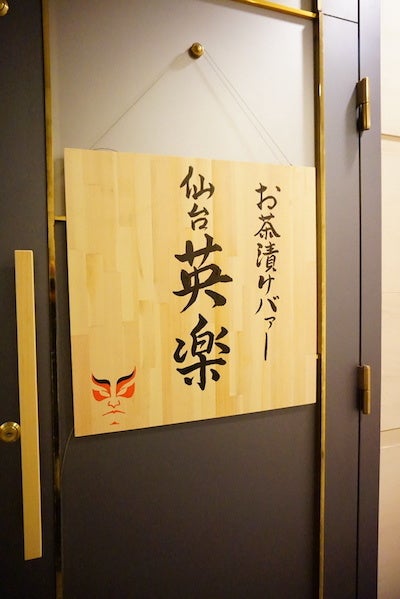 お茶漬けバァー
仙台
英楽